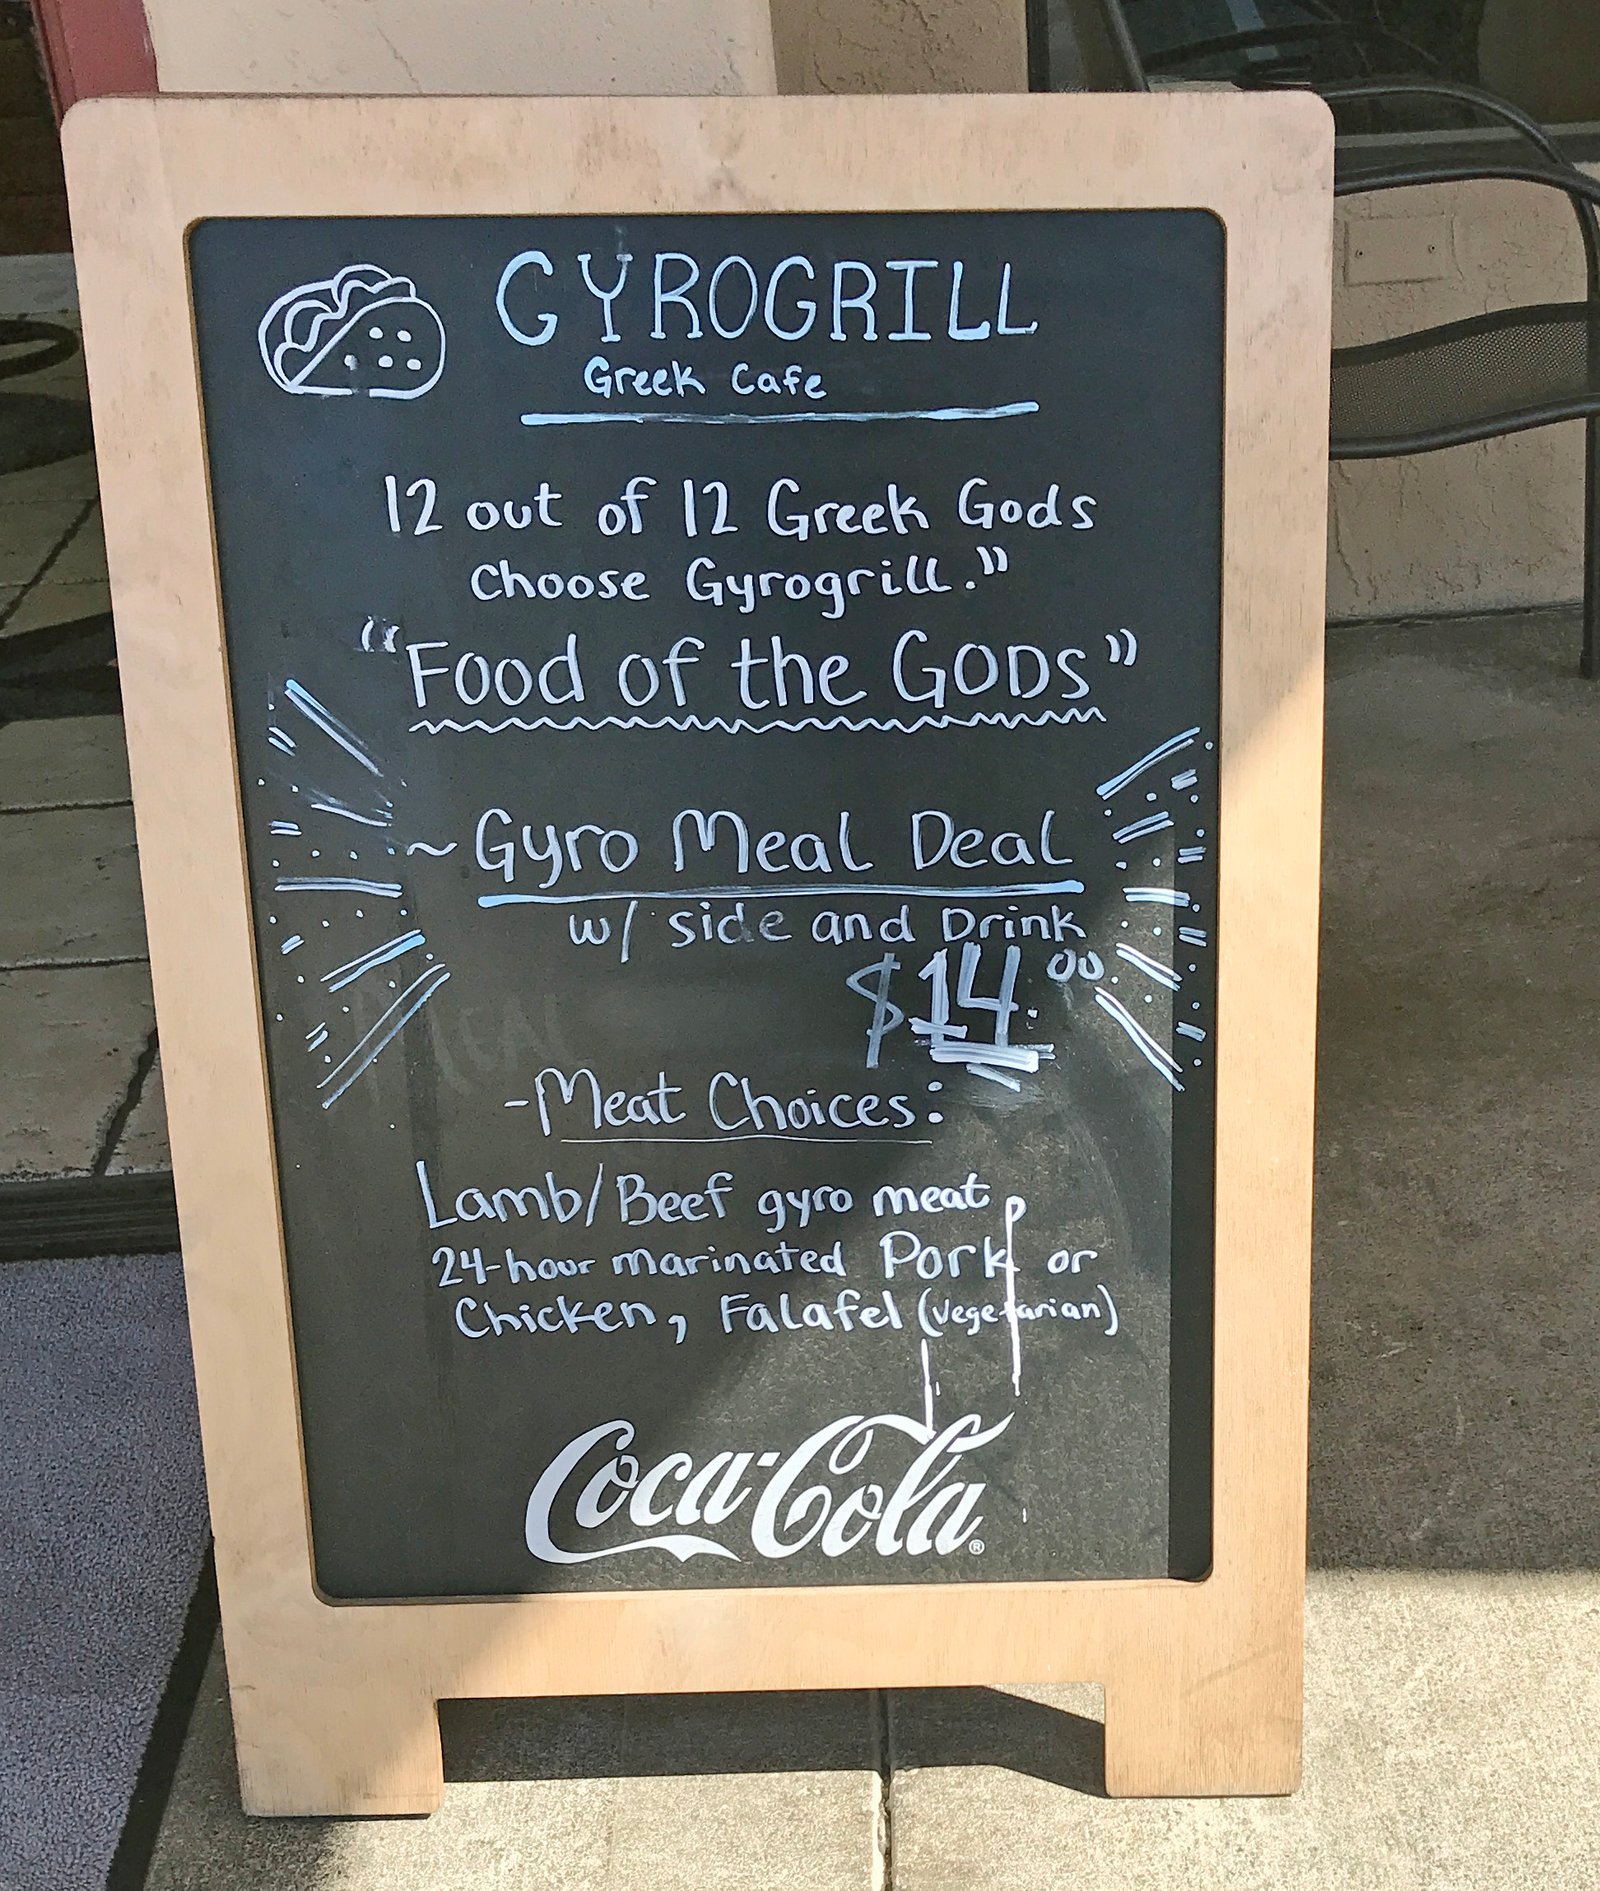 GYROGRILL
Greek Cafe
12 out of 12 Greek Gods
choose Gyrogrill."
"Food of the GODS"
~ Gyro Meal Deal
w/ side and Drink
$14.00
-Meat Choices:
Lamb/Beef gyro meat,
24-hour marinated Pork or
Chicken, Falafel (vegetarian)
Coca-Cola®